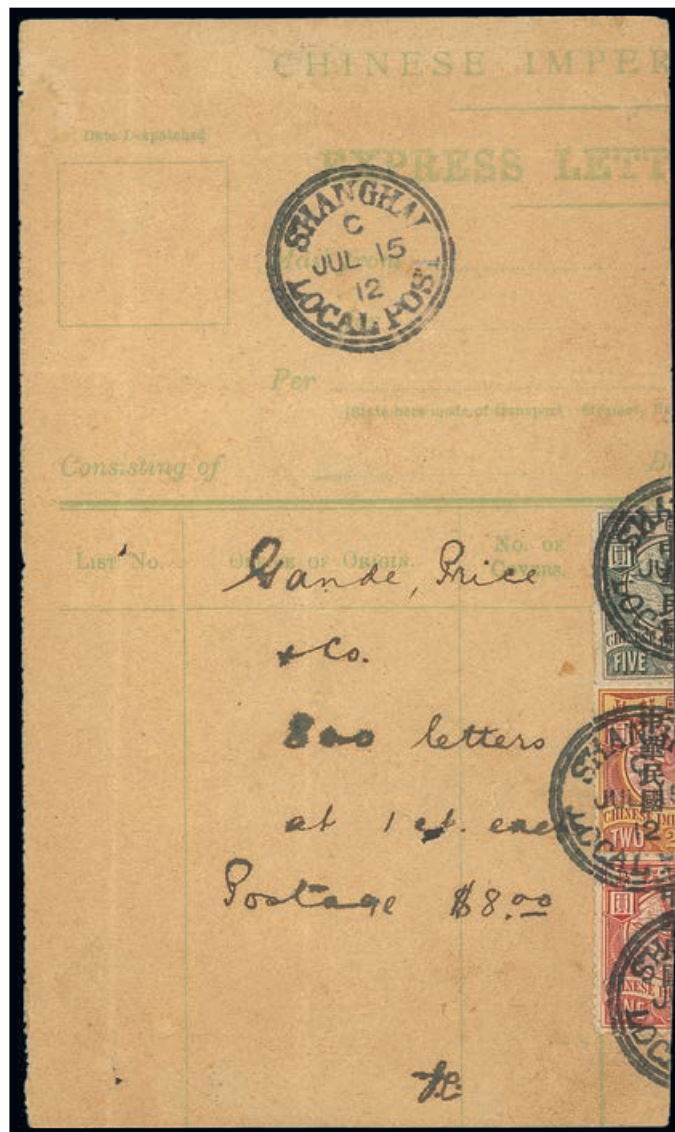 CHINESE IMPER
Date Despatched
EXPRESS LETT
SHANGHAI
C
JUL 15
12
LOCAL POST
Mail from
Per
(State here mode of transport
Consisting of
List No.
Office of Origin.
No. of
Covers.
Gande, Price
& Co.
800 letters
at 1 ct. each
Postage $8.00
FIVE
SHAN
C
JUL 15
12
LOCAL
中華民國
CHINESE IM
TWO